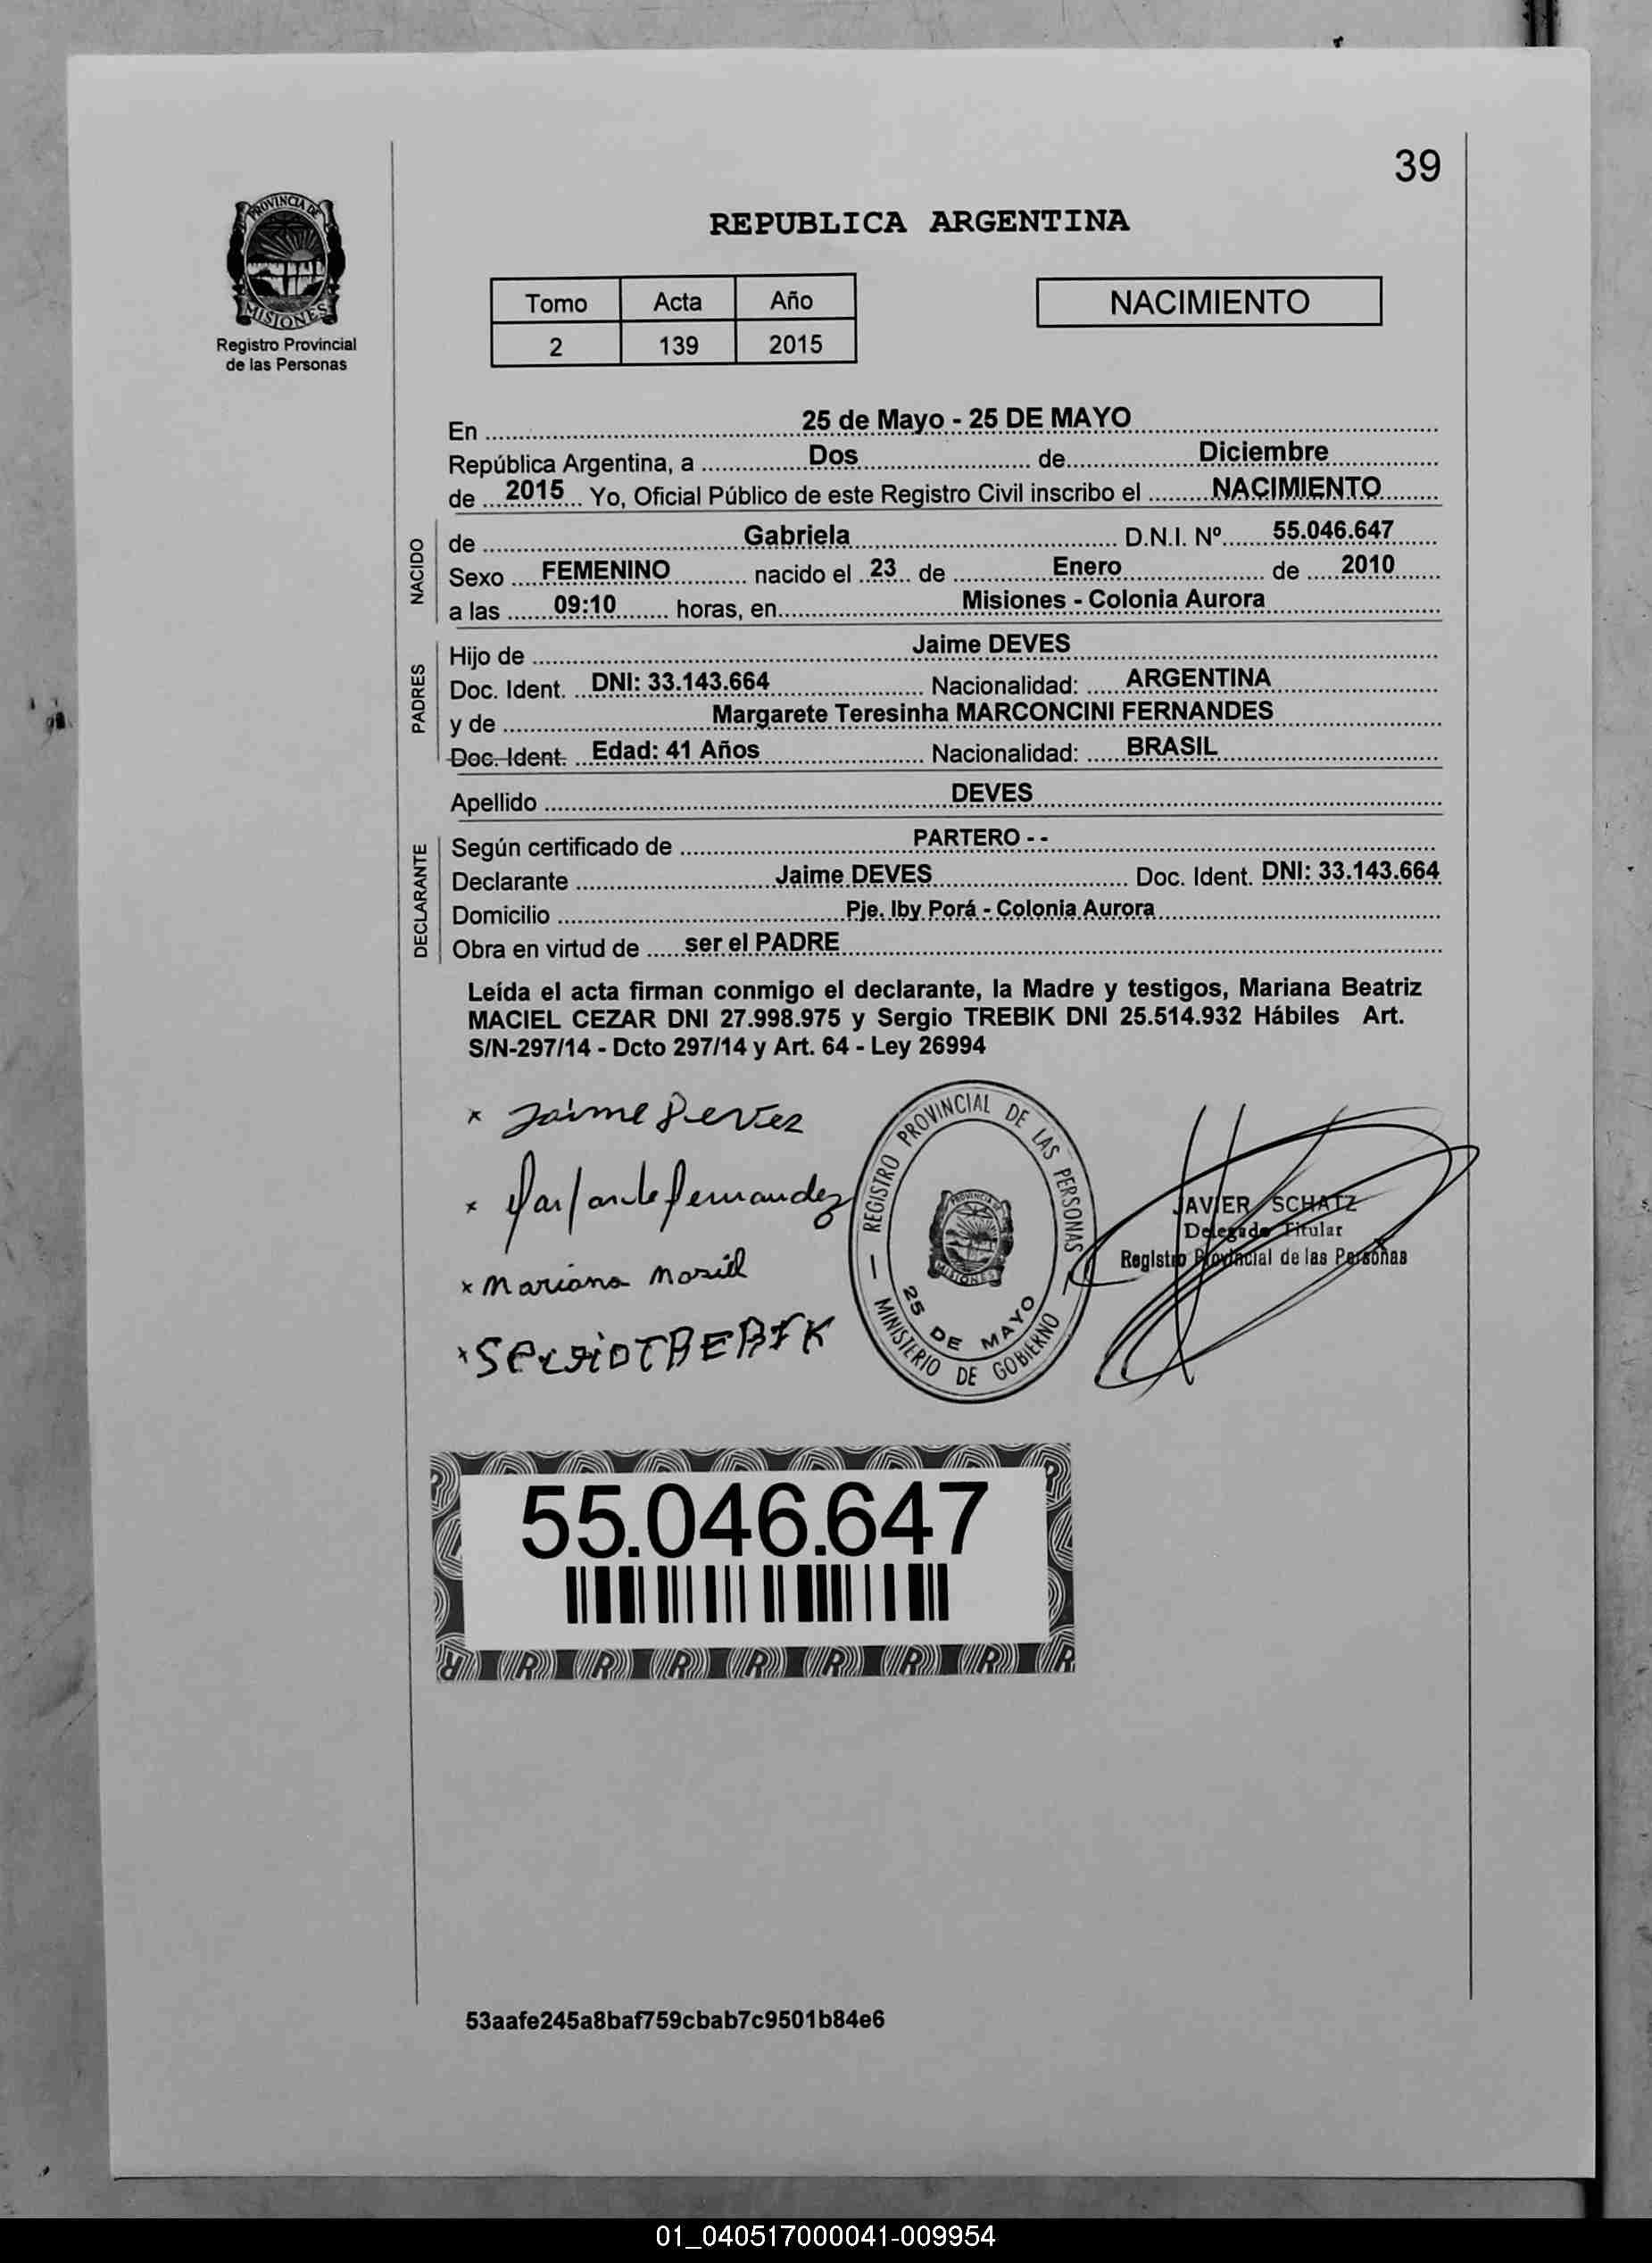 39
PROVINCIA DE
MISIONES
Registro Provincial
de las Personas
REPUBLICA ARGENTINA
Tomo Acta Año
2 139 2015
NACIMIENTO
En 25 de Mayo - 25 DE MAYO
República Argentina, a Dos de Diciembre
de 2015 Yo, Oficial Público de este Registro Civil inscribo el NACIMIENTO
NACIDO
de Gabriela D.N.I. Nº 55.046.647
Sexo FEMENINO nacido el 23 de Enero de 2010
a las 09:10 horas, en Misiones - Colonia Aurora
PADRES
Hijo de Jaime DEVES
Doc. Ident. DNI: 33.143.664 Nacionalidad: ARGENTINA
y de Margarete Teresinha MARCONCINI FERNANDES
Doc. Ident. Edad: 41 Años Nacionalidad: BRASIL
Apellido DEVES
DECLARANTE
Según certificado de PARTERO - -
Declarante Jaime DEVES Doc. Ident. DNI: 33.143.664
Domicilio Pje. Iby Porá - Colonia Aurora
Obra en virtud de ser el PADRE
Leída el acta firman conmigo el declarante, la Madre y testigos, Mariana Beatriz
MACIEL CEZAR DNI 27.998.975 y Sergio TREBIK DNI 25.514.932 Hábiles Art.
S/N-297/14 - Dcto 297/14 y Art. 64 - Ley 26994
x Jaime
x
x Mariana
x
REGISTRO PROVINCIAL DE LAS PERSONAS
PROVINCIA DE
MISIONES
25 DE MAYO
MINISTERIO DE GOBIERNO
JAVIER SCHATZ
Delegado Titular
Registro Provincial de las Personas
55.046.647
53aafe245a8baf759cbab7c9501b84e6
01_040517000041-009954